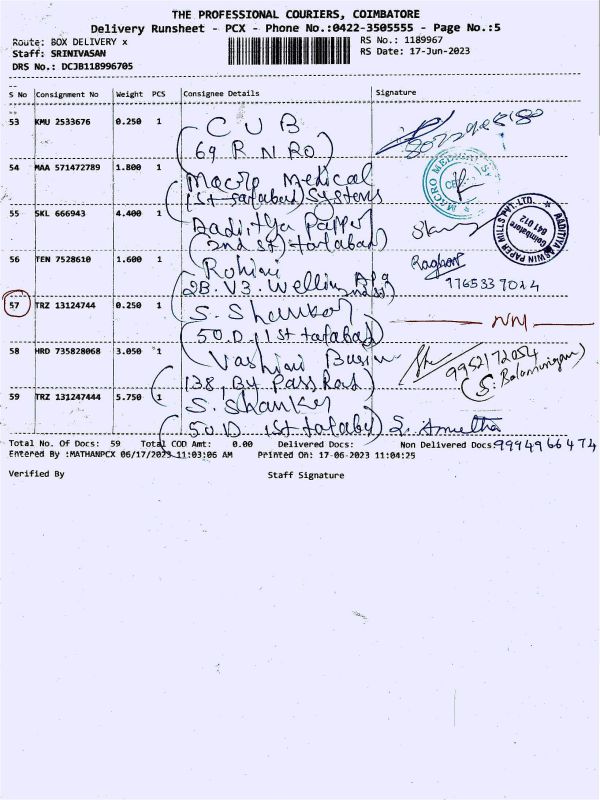 THE PROFESSIONAL COURIERS, COIMBATORE
Delivery Runsheet - PCX - Phone No.:0422-3505555 - Page No.:5
Route: BOX DELIVERY x
RS No.: 1189967
Staff: SRINIVASAN
RS Date: 17-Jun-2023
DRS No.: DCJB118996705
S No Consignment No Weight PCS Consignee Details Signature
53 KMU 2533676 0.250 1 C U B
(69 R N RO)
54 MAA 571472789 1.800 1 Macro Medical
(1st Systems
55 SKL 666943 4.400 1 Paper
(2nd St) tatabad)
56 TEN 7528610 1.600 1 Rohini
2B. V3. Raghav
9765337014
57 TRZ 13124744 0.250 1 S. Shanker
(50.D. 1st tatabad)
58 HRD 735828068 3.050 1 Vashini
(138, By Pass Road) 9952172054
59 TRZ 131247444 5.750 1 S. Shanker
(50.D 1st S. Amutha
Total No. Of Docs: 59 Total COD Amt: 0.00 Delivered Docs: Non Delivered Docs: 9994966474
Entered By :MATHANPCX 06/17/2023 11:03:06 AM Printed On: 17-06-2023 11:04:25
Verified By Staff Signature